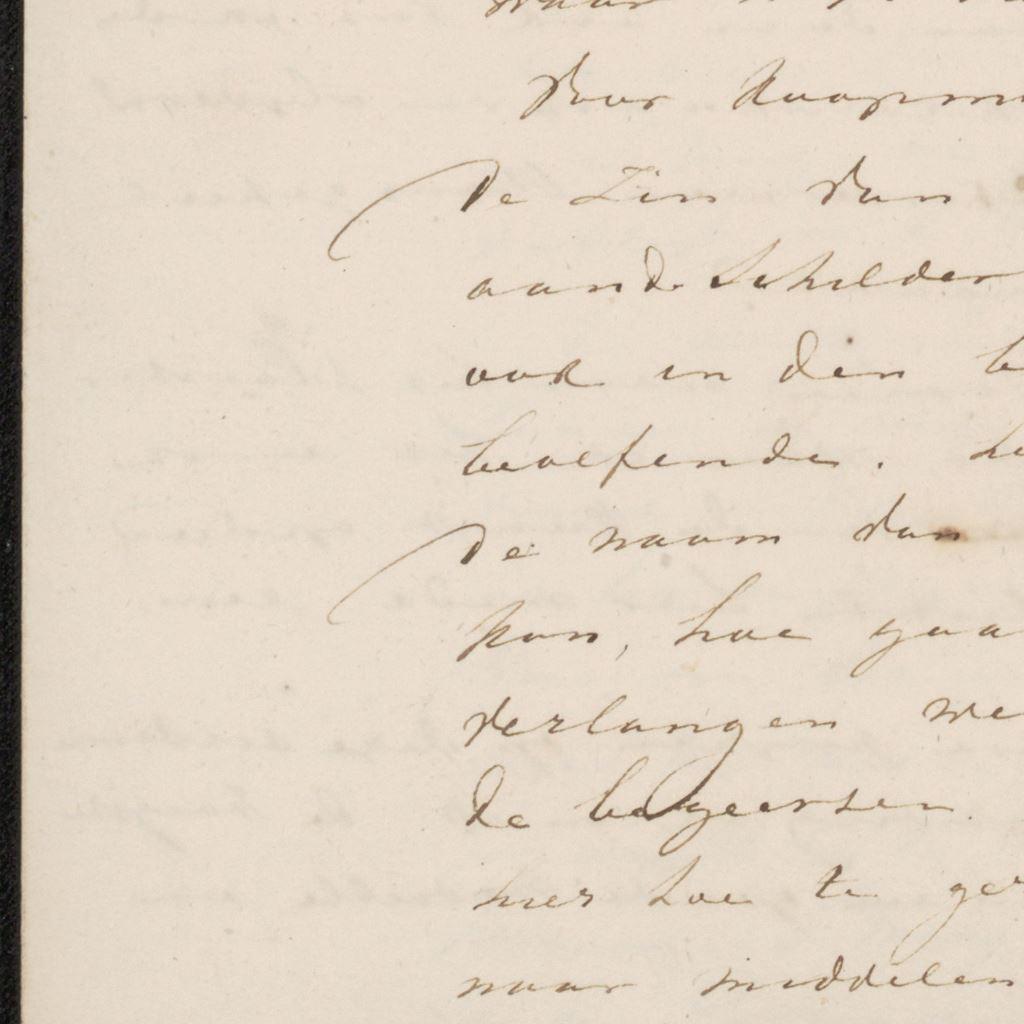 voor Koopm
De Zin van
aan de Schilder
ook in den b
beoefende. 
De naam van
kon, hoe gaa
verlangen we
de begeerten
hier toe te ge
naar middelen